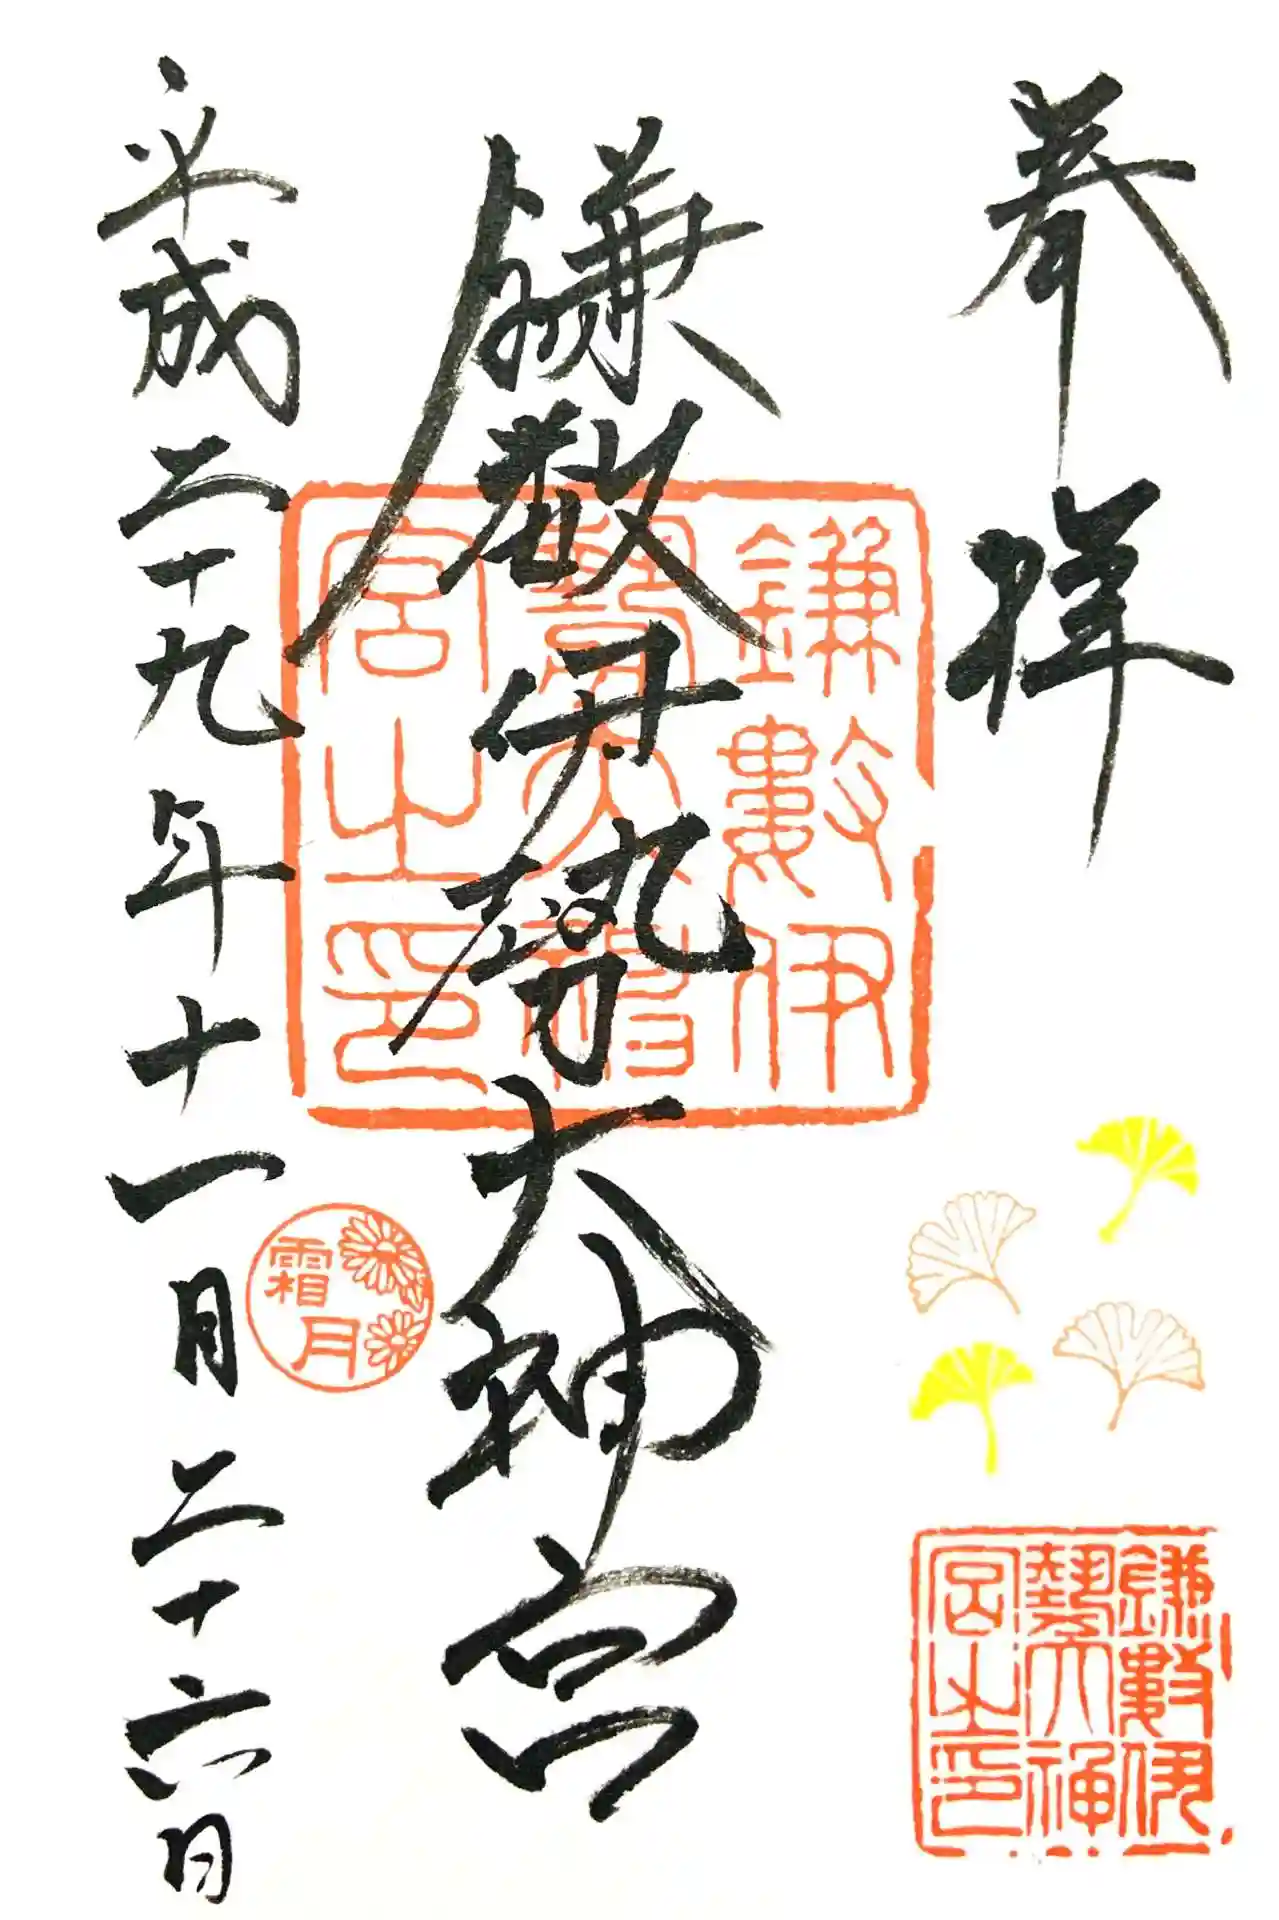 奉拝
鎌数伊勢大神宮
平成二十九年十一月二十六日
鎌數伊
勢大神
宮之印
霜月
鎌數伊
勢大神
宮之印